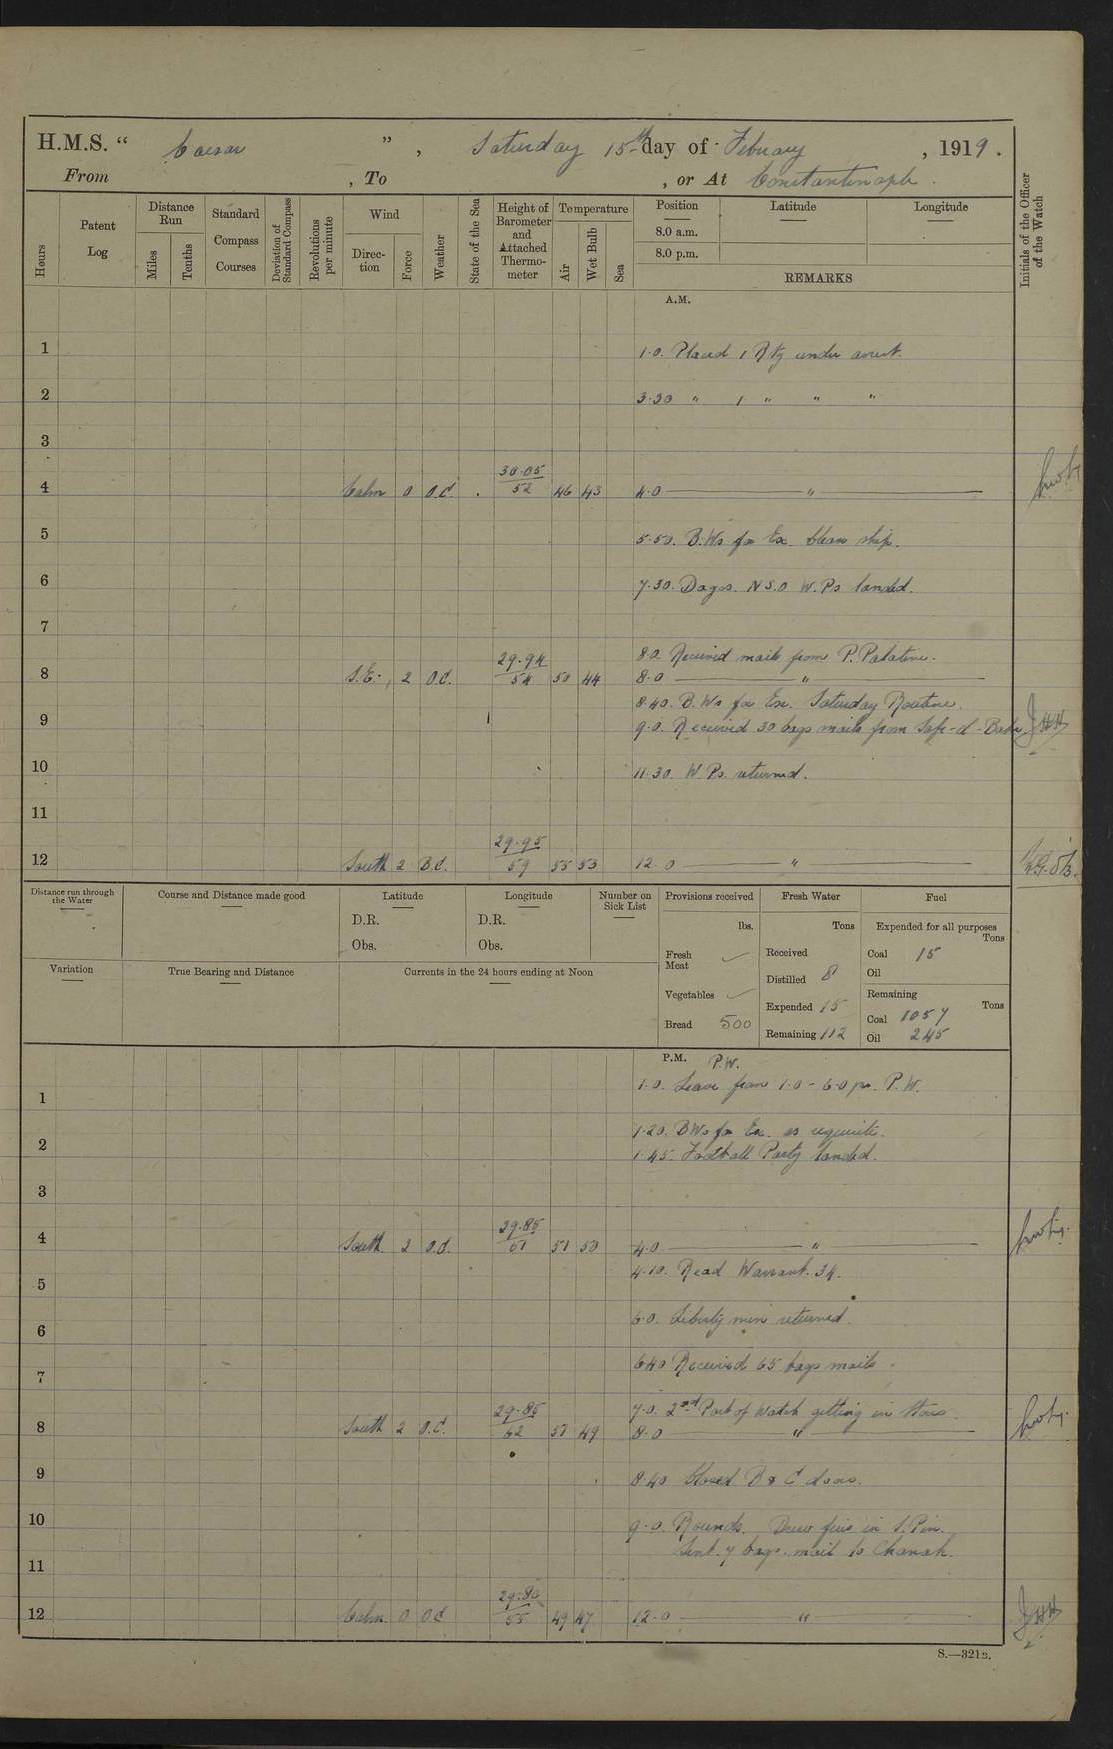 H.M.S. " Caesar ", Saturday 15th day of Febuary, 1919.
From , To , or At Constantinople.
Hours Patent Log Distance Run Miles Tenths Standard Compass Courses Deviation of Standard Compass Revolutions per minute Wind Direction Force Weather State of the Sea Height of Barometer and Attached Thermometer Temperature Air Wet Bulb Sea Position Latitude Longitude
8.0 a.m.
8.0 p.m.
REMARKS
Initials of the Officer of the Watch
A.M.
1 1.0. Placed 1 Rtg under arrest.
2 3.30 " 1 " " "
3
4 Calm 0 O.C. 30.05 52 46 43 4.0 "
5 5.50. B.Ws for Ex. Clean ship.
6 7.30. Dagos. N.S.O W.Ps landed.
7
8.0 Received mails from P. Palatine.
8 S.E. 2 O.C. 29.94 54 50 44 8.0 "
8.40. B.Ws for Ex. Saturday Routine.
9 9.0. Received 30 bags mails from
10 11.30. W.Ps. returned.
11
12 South 2 B.C. 29.95 59 55 53 12.0 "
Distance run through the Water Course and Distance made good Latitude Longitude Number on Sick List Provisions received Fresh Water Fuel
D.R. D.R. lbs. Tons Expended for all purposes Tons
Obs. Obs. Fresh Meat Received Coal 15
Oil
Variation True Bearing and Distance Currents in the 24 hours ending at Noon Distilled 8
Vegetables Expended 15 Remaining Tons
Coal 1057
Bread 500 Remaining 112 Oil 245
P.M. P.W.
1 1.0. Leave from 1.0 - 6.0 pm. P.W.
1.20. BWs for Ex. as requisite.
2 1.45. Football Party landed.
3
4 South 2 O.C. 29.85 61 51 50 4.0 "
4.10. Read Warrant. 34.
5
6 6.0. Liberty men returned.
7 6.40 Received 65 bags mails.
7.0. 2nd Part of Watch getting in stores
8 South 2 O.C. 29.85 62 51 49 8.0 "
9 8.40 Closed B & C doors.
10 9.0. Rounds. Drew fires in S. Pin.
11 Sent 7 bags mail to Chanak.
12 Calm 0 O.C. 29.80 55 49 47 12.0 "
S.—321B.